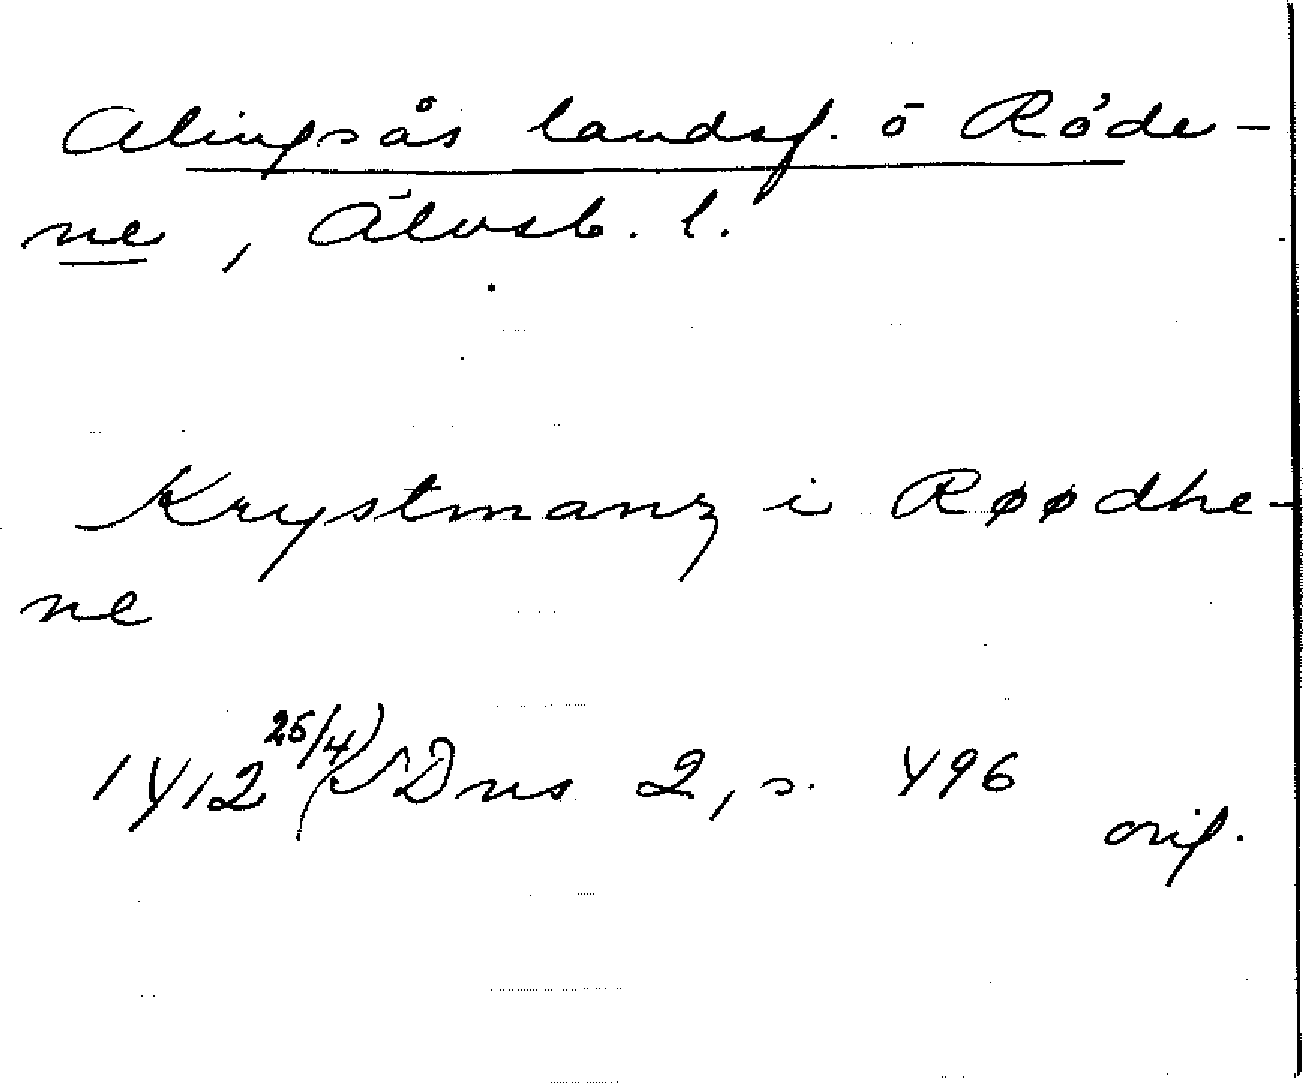 Alingsås landsf. ö Röde-
ne, Älvsb. l.
Krystmanz i Røødhe-
ne
1412 25/4 (SDns 2, s. 496
orig.